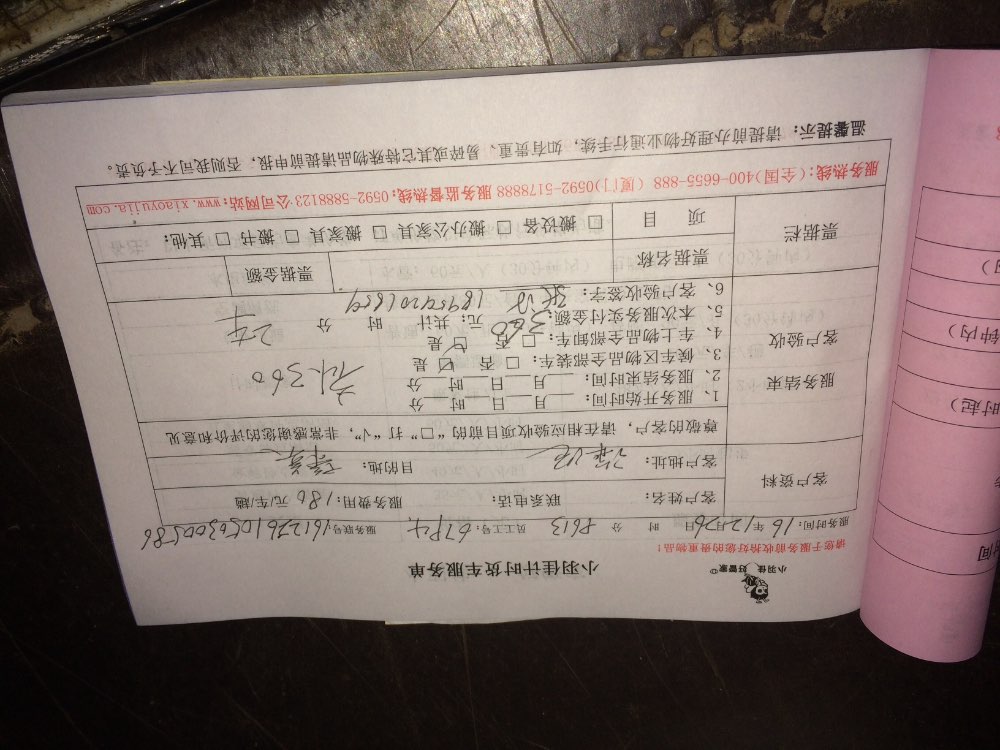 小羽佳 好管家
小羽佳计时货车服务单
请您于服务前收拾好您的贵重物品!
服务时间: 16年12月26日 时 分 P613 员工工号: 67 服务联号: 1612261056300586
客户资料
客户姓名: 联系电话: 服务费用: 180 元车/趟
客户地址: 目的地:
尊敬的客户,请在相应验收项目前的“□”打“√”,非常感谢您的评价和意见
服务结束
客户验收
1、服务开始时间: 月 日 时 分
2、服务结束时间: 月 日 时 分
3、候车区物品全部装车: □ 否 ☑ 是
4、车上物品全部卸车: □ 否 ☑ 是
5、本次服务实付金额: 360 元; 共计: 时 分
6、客户验收签字: 18959201659
360
2车
票据栏
票据名称 票据金额
项 目 □ 搬设备 □ 搬办公家具 □ 搬家具 □ 搬书 □ 其他:
服务热线:(全国)400-6655-888 (厦门)0592-5178888 服务监督热线:0592-5888123 公司网站:www.xiaoyujia.com
温馨提示: 请提前办理好物业通行手续, 如有贵重、易碎或其它特殊物品请提前申报, 否则我司不予负责。
钟内)
时起)